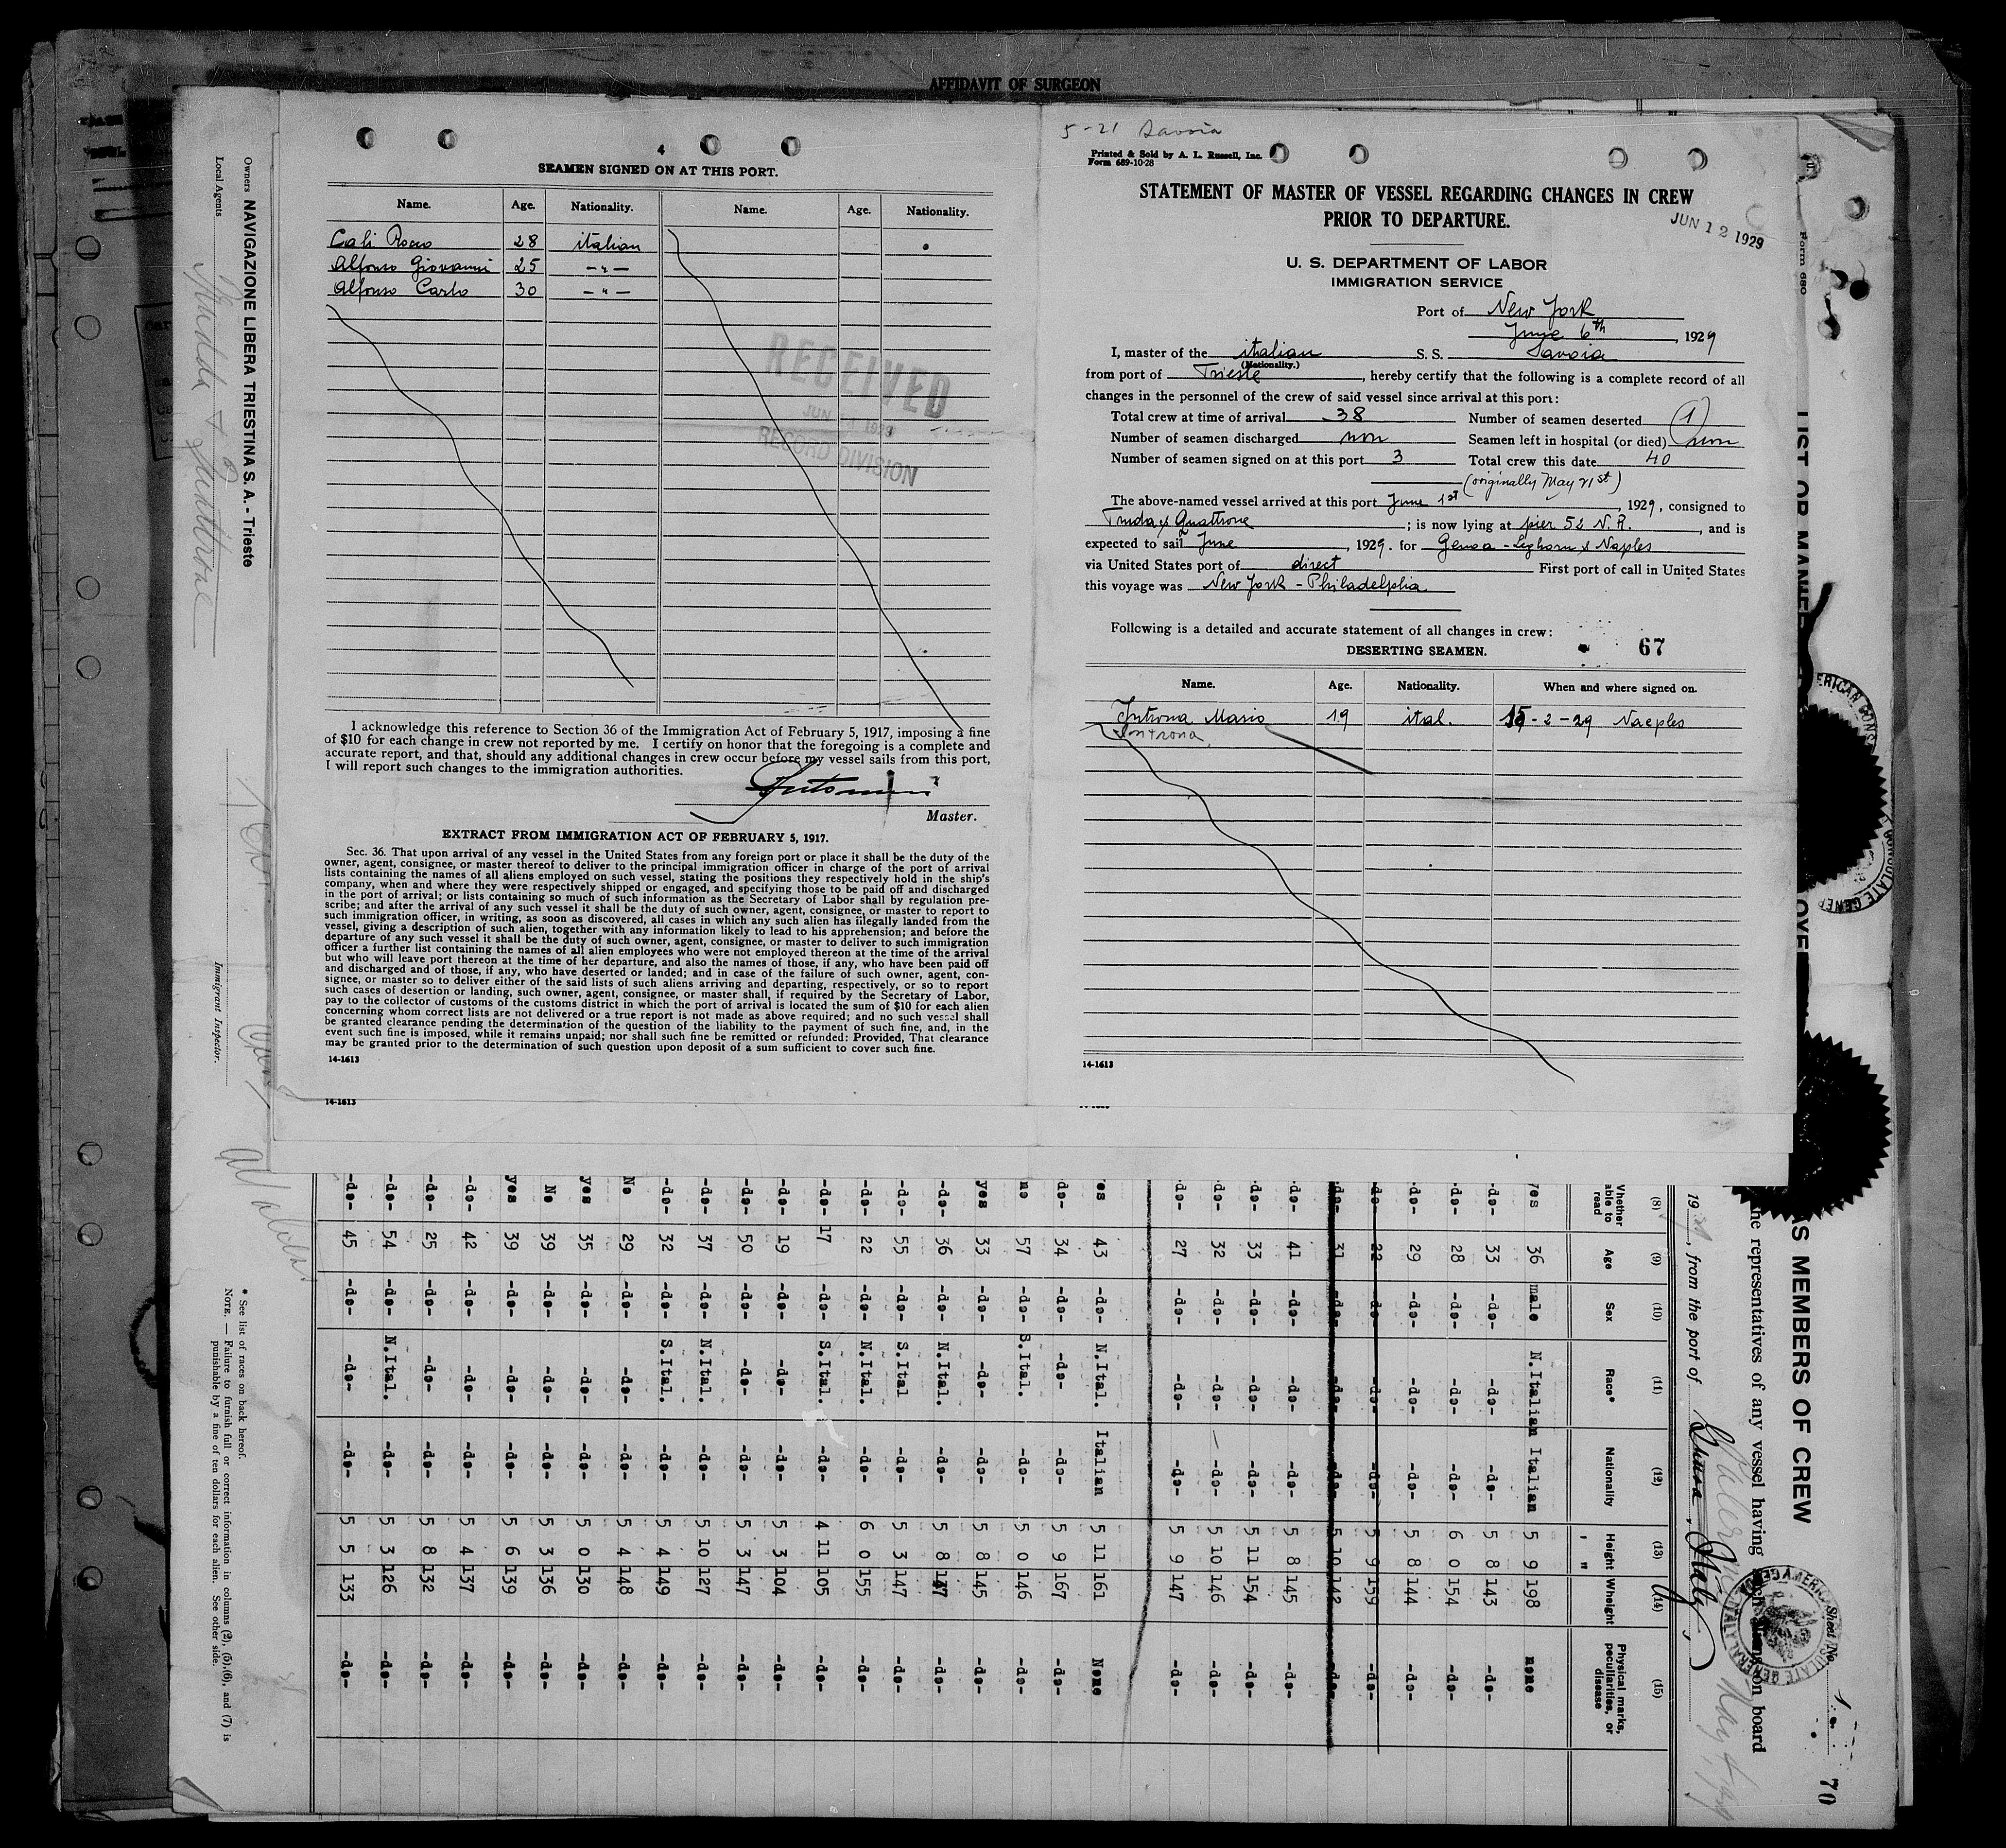 AFFIDAVIT OF SURGEON
4
SEAMEN SIGNED ON AT THIS PORT.
Name. Age. Nationality. Name. Age. Nationality.
Cali Rocco 28 italian
Alfonso Giovanni 25 -"-
Alfonso Carlo 30 -"-
RECEIVED
JUN
RECORD DIVISION
I acknowledge this reference to Section 36 of the Immigration Act of February 5, 1917, imposing a fine
of $10 for each change in crew not reported by me. I certify on honor that the foregoing is a complete and
accurate report, and that, should any additional changes in crew occur before my vessel sails from this port,
I will report such changes to the immigration authorities.
Master.
EXTRACT FROM IMMIGRATION ACT OF FEBRUARY 5, 1917.
Sec. 36. That upon arrival of any vessel in the United States from any foreign port or place it shall be the duty of the
owner, agent, consignee, or master thereof to deliver to the principal immigration officer in charge of the port of arrival
lists containing the names of all aliens employed on such vessel, stating the positions they respectively hold in the ship's
company, when and where they were respectively shipped or engaged, and specifying those to be paid off and discharged
in the port of arrival; or lists containing so much of such information as the Secretary of Labor shall by regulation pre-
scribe; and after the arrival of any such vessel it shall be the duty of such owner, agent, consignee, or master to report to
such immigration officer, in writing, as soon as discovered, all cases in which any such alien has illegally landed from the
vessel, giving a description of such alien, together with any information likely to lead to his apprehension; and before the
departure of any such vessel it shall be the duty of such owner, agent, consignee, or master to deliver to such immigration
officer a further list containing the names of all alien employees who were not employed thereon at the time of the arrival
but who will leave port thereon at the time of her departure, and also the names of those, if any, who have been paid off
and discharged and of those, if any, who have deserted or landed; and in case of the failure of such owner, agent, con-
signee, or master so to deliver either of the said lists of such aliens arriving and departing, respectively, or so to report
such cases of desertion or landing, such owner, agent, consignee, or master shall, if required by the Secretary of Labor,
pay to the collector of customs of the customs district in which the port of arrival is located the sum of $10 for each alien
concerning whom correct lists are not delivered or a true report is not made as above required; and no such vessel shall
be granted clearance pending the determination of the question of the liability to the payment of such fine, and, in the
event such fine is imposed, while it remains unpaid; nor shall such fine be remitted or refunded: Provided, That clearance
may be granted prior to the determination of such question upon deposit of a sum sufficient to cover such fine.
14-1613
14-1613
5-21 Savoia
Printed & Sold by A. L. Russell, Inc.
Form 689-10-28
STATEMENT OF MASTER OF VESSEL REGARDING CHANGES IN CREW
PRIOR TO DEPARTURE.
JUN 12 1929
U. S. DEPARTMENT OF LABOR
IMMIGRATION SERVICE
Port of New York
June 6th, 1929
I, master of the italian S. S. Savoia
(Nationality.)
from port of Trieste, hereby certify that the following is a complete record of all
changes in the personnel of the crew of said vessel since arrival at this port:
Total crew at time of arrival 38 Number of seamen deserted 1
Number of seamen discharged non Seamen left in hospital (or died) non
Number of seamen signed on at this port 3 Total crew this date 40
(originally May 21st)
The above-named vessel arrived at this port June 1st, 1929, consigned to
Truda & Quattrone; is now lying at pier 52 N.R., and is
expected to sail June, 1929. for Genoa - Leghorn & Naples
via United States port of direct First port of call in United States
this voyage was New York - Philadelphia
Following is a detailed and accurate statement of all changes in crew:
67
DESERTING SEAMEN.
Name. Age. Nationality. When and where signed on.
Introna Mario 19 ital. 15-2-29 Naeples
Introna
14-1613
Owners NAVIGAZIONE LIBERA TRIESTINA S. A. - Trieste
Local Agents
Immigrant Inspector.
* See list of races on back hereof.
NOTE. — Failure to furnish full or correct information in columns (2), (5), (6), and (7) is
punishable by a fine of ten dollars for each alien. See other side.
Form 680
AS MEMBERS OF CREW
Sheet No. 1
70
the representatives of any vessel having
on board
19, from the port of Genoa, Italy,
(8) (9) (10) (11) (12) (13) (14) (15)
Whether able to read Age Sex Race* Nationality Height Wheight Physical marks, peculiarities, or disease
yes 36 male N.Italian Italian 5 9 198 none
-do- 33 -do- -do- -do- 5 8 143 -do-
-do- 28 -do- -do- -do- 6 0 154 -do-
-do- 29 -do- -do- -do- 5 8 144 -do-
-do- 22 -do- -do- -do- 5 9 159 -do-
-do- 31 -do- -do- -do- 5 10 142 -do-
-do- 41 -do- -do- -do- 5 8 145 -do-
-do- 33 -do- -do- -do- 5 11 154 -do-
-do- 32 -do- -do- -do- 5 10 146 -do-
-do- 27 -do- -do- -do- 5 9 147 -do-
yes 43 -do- N.Ital. Italian 5 11 161 None
-do- 34 -do- -do- -do- 5 9 167 -do-
no 57 -do- S.Ital. -do- 5 0 146 -do-
yes 33 -do- -do- -do- 5 8 145 -do-
-do- 36 -do- N.Ital. -do- 5 8 147 -do-
-do- 55 -do- S.Ital -do- 5 3 147 -do-
-do- 22 -do- N.Ital. -do- 6 0 155 -do-
-do- 17 -do- S.Ital. -do- 4 11 105 -do-
-do- 19 -do- -do- -do- 5 3 104 -do-
-do- 50 -do- -do- -do- 5 3 147 -do-
-do- 37 -do- N.Ital. -do- 5 10 127 -do-
-do- 32 -do- S.Ital. -do- 5 4 149 -do-
No 29 -do- -do- -do- 5 4 148 -do-
yes 35 -do- -do- -do- 5 0 130 -do-
No 39 -do- -do- -do- 5 3 136 -do-
yes 39 -do- -do- -do- 5 6 139 -do-
-do- 42 -do- -do- -do- 5 4 137 -do-
-do- 25 -do- -do- -do- 5 8 132 -do-
-do- 54 -do- N.Ital. -do- 5 3 126 -do-
-do- 45 -do- -do- -do- 5 5 133 -do-